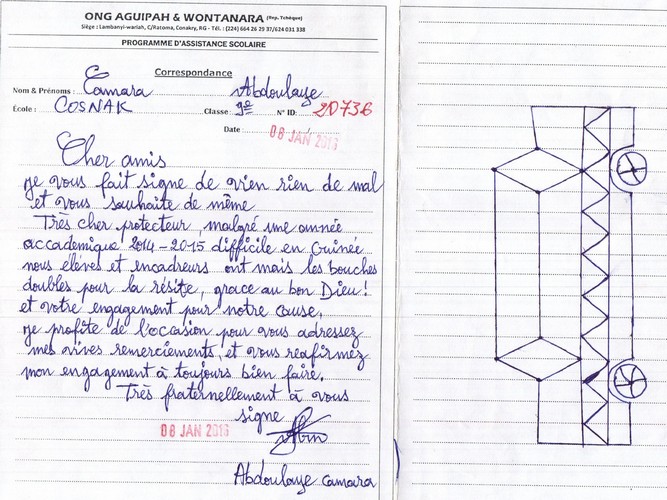 ONG AGUIPAH & WONTANARA (Rep. Tchèque)
Siège : Lambanyi-wariah, C/Ratoma, Conakry, RG - Tél. : (224) 664 26 29 37/624 031 338
PROGRAMME D'ASSISTANCE SCOLAIRE
Correspondance
Nom & Prénoms : Camara Abdoulaye
École : COSNAK Classe : 9e N° ID: 20736
Date 08 JAN 2016
Cher amis
je vous fait signe de vien rien de mal
et vous souhaite de même
Très cher protecteur, malgré une année
accademique 2014-2015 difficile en Guinée
nous élèves et encadreurs ont mais les bouches
doubles pour la résite, grace au bon Dieu!
et votre engagement pour notre cause,
je profite de l'occasion pour vous adressez
mes vives remerciements, et vous réafirmez
mon engagement à toujours bien faire.
Très fraternellement à vous
signe
08 JAN 2016
Abdoulaye camara